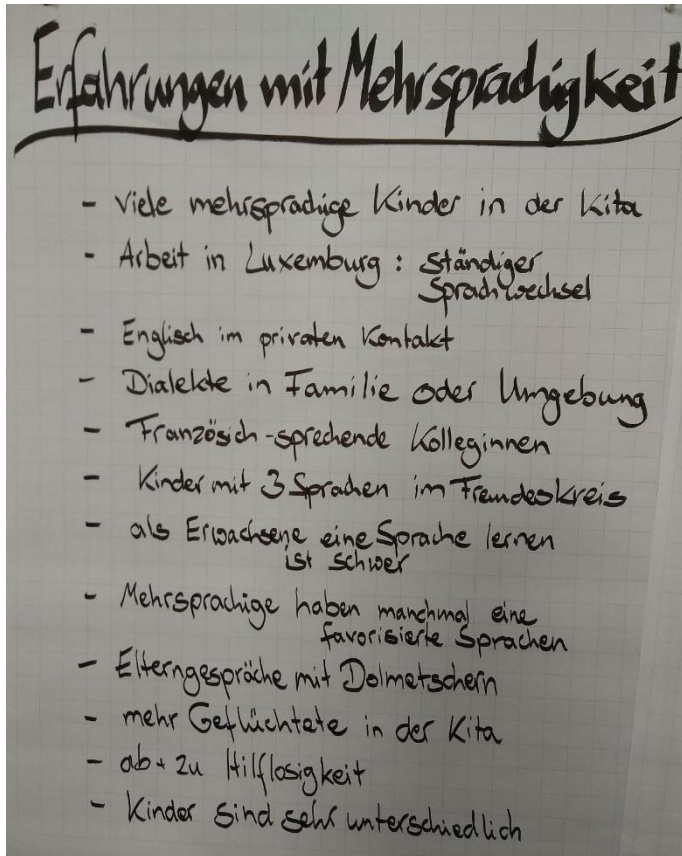 Erfahrungen mit Mehrsprachigkeit
- viele mehrsprachige Kinder in der Kita
- Arbeit in Luxemburg : ständiger
Sprachwechsel
- Englisch im privaten Kontakt
- Dialekte in Familie oder Umgebung
- Französich-sprechende Kolleginnen
- Kinder mit 3 Sprachen im Freundeskreis
- als Erwachsene eine Sprache lernen
ist schwer
- Mehrsprachige haben manchmal eine
favorisierte Sprachen
- Elterngespräche mit Dolmetschern
- mehr Geflüchtete in der Kita
- ab + zu Hilflosigkeit
- Kinder sind sehr unterschiedlich